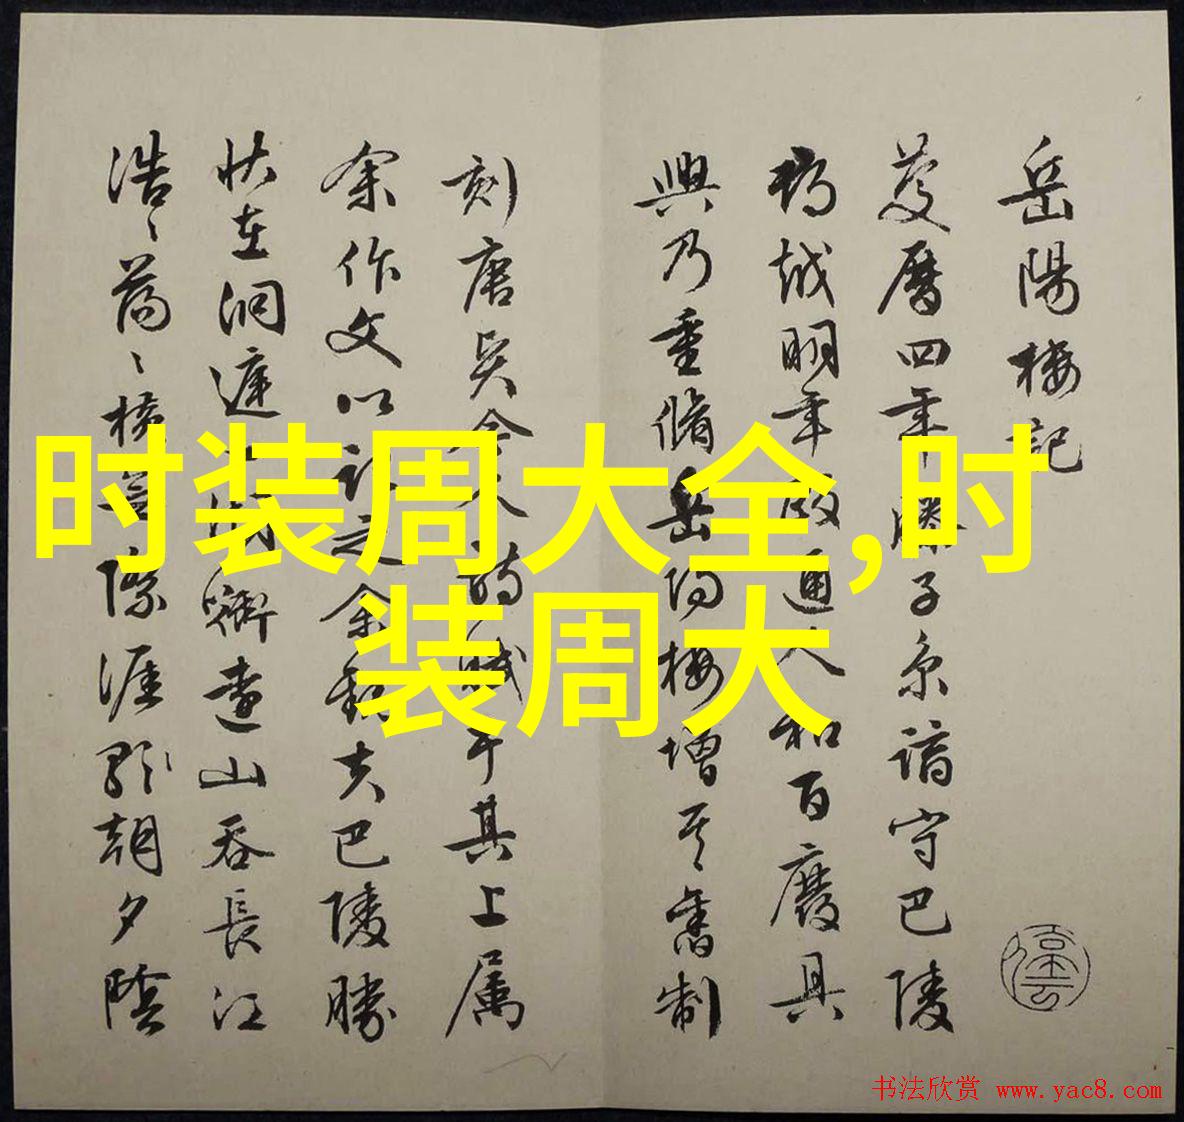 岳陽樓記
慶曆四年滕子京謫守巴陵
郡越明年政通人和百廢具
興乃重脩岳陽樓增其舊制
刻唐賢今人詩賦于其上属
余作文以記之余觀夫巴陵勝
状在洞庭一湖銜遠山吞長江
浩、蕩、橫無際涯朝夕陰
时装周大全,时
装周大
书法欣赏 www.yac8.com